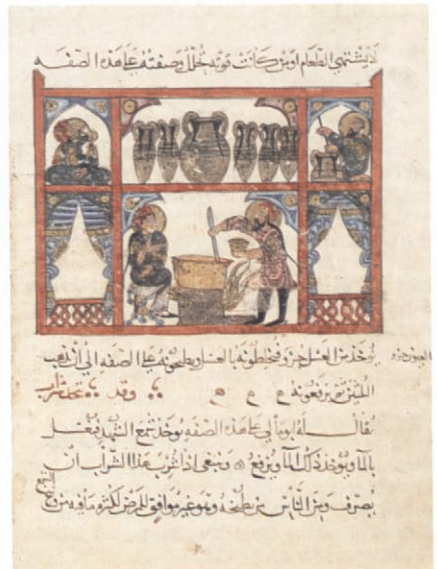 لا يشتهي الطعام او من كانت قوته تحلل وصنعته على هذه الصفه
يوخذ من العسل جزو فيخلطونه بالعسل ويطبخونه على الصفه الى ان تذهب
الثلثين ثم يرفعونه وقد يتخذ شراب
يقال له على هذه الصفه يوخذ شمع الشهد فيغسل
بالما ويوخذ ذلك الما ويرفع وينبغي اذا شرب هذا الشراب ان
يصرف ومن الناس من يطبخه وهو غير موافق للمرضى لكثرة ما فيه من وسخ
الشمع